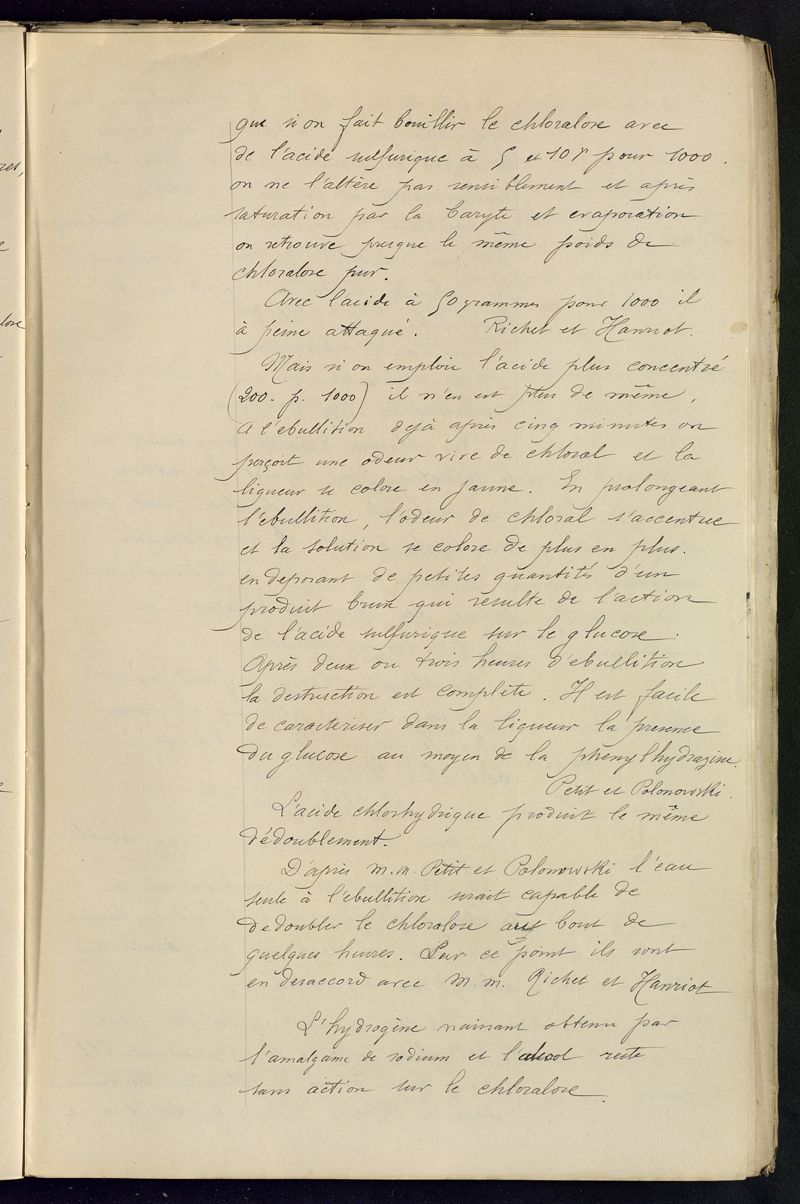 que si on fait bouillir le chloralose avec
de l'acide sulfurique à 5 et 10 gr pour 1000.
on ne l'altère pas sensiblement et après
saturation par la baryte et evaporation
on retrouve presque le même poids de
chloralose pur.
Avec l'acide à 50 grammes pour 1000 il
à peine attaqué. Richet et Hanriot.
Mais si on emploie l'acide plus concentré
(200. p. 1000) il n'en est plus de même,
a l'ebullition dejà après cinq minutes on
perçoit une odeur vive de chloral et la
liqueur se colore en jaune. En prolongeant
l'ébullition, l'odeur de chloral s'accentue
et la solution se colore de plus en plus.
en deposant de petites quantités d'un
produit brun qui résulte de l'action
de l'acide sulfurique sur le glucose.
Après deux ou trois heures d'ebullition
la destruction est complète. Il est facile
de caracteriser dans la liqueur la presence
du glucose au moyen de la phenylhydrazine.
Petit et Polonowski.
L'acide chlorhydrique produit le même
dédoublement.
D'après M.M. Petit et Polonowski l'eau
seule à l'ébullition serait capable de
dedoubler le chloralose au bout de
quelques heures. Sur ce point ils sont
en desaccord avec M. M. Richet et Hanriot
L'hydrogène naissant obtenu par
l'amalgame de sodium et l'alcool reste
sans action sur le chloralose.